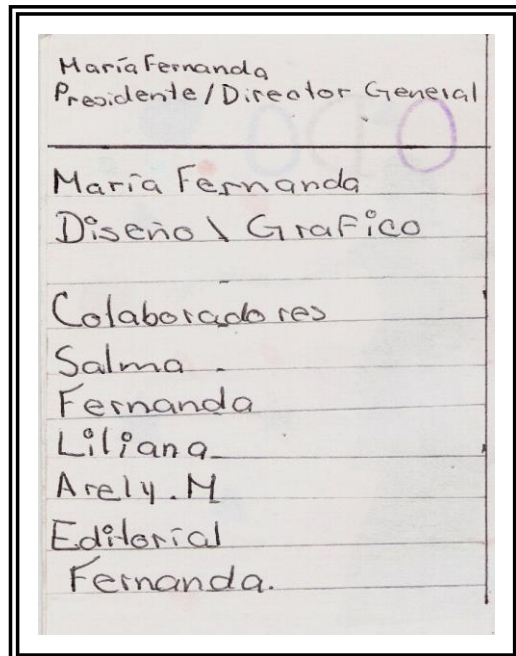 María Fernanda
Presidente/Director General
María Fernanda
Diseño \ Grafico
Colaboradores
Salma.
Fernanda
Liliana
Arely.M
Editorial
Fernanda.